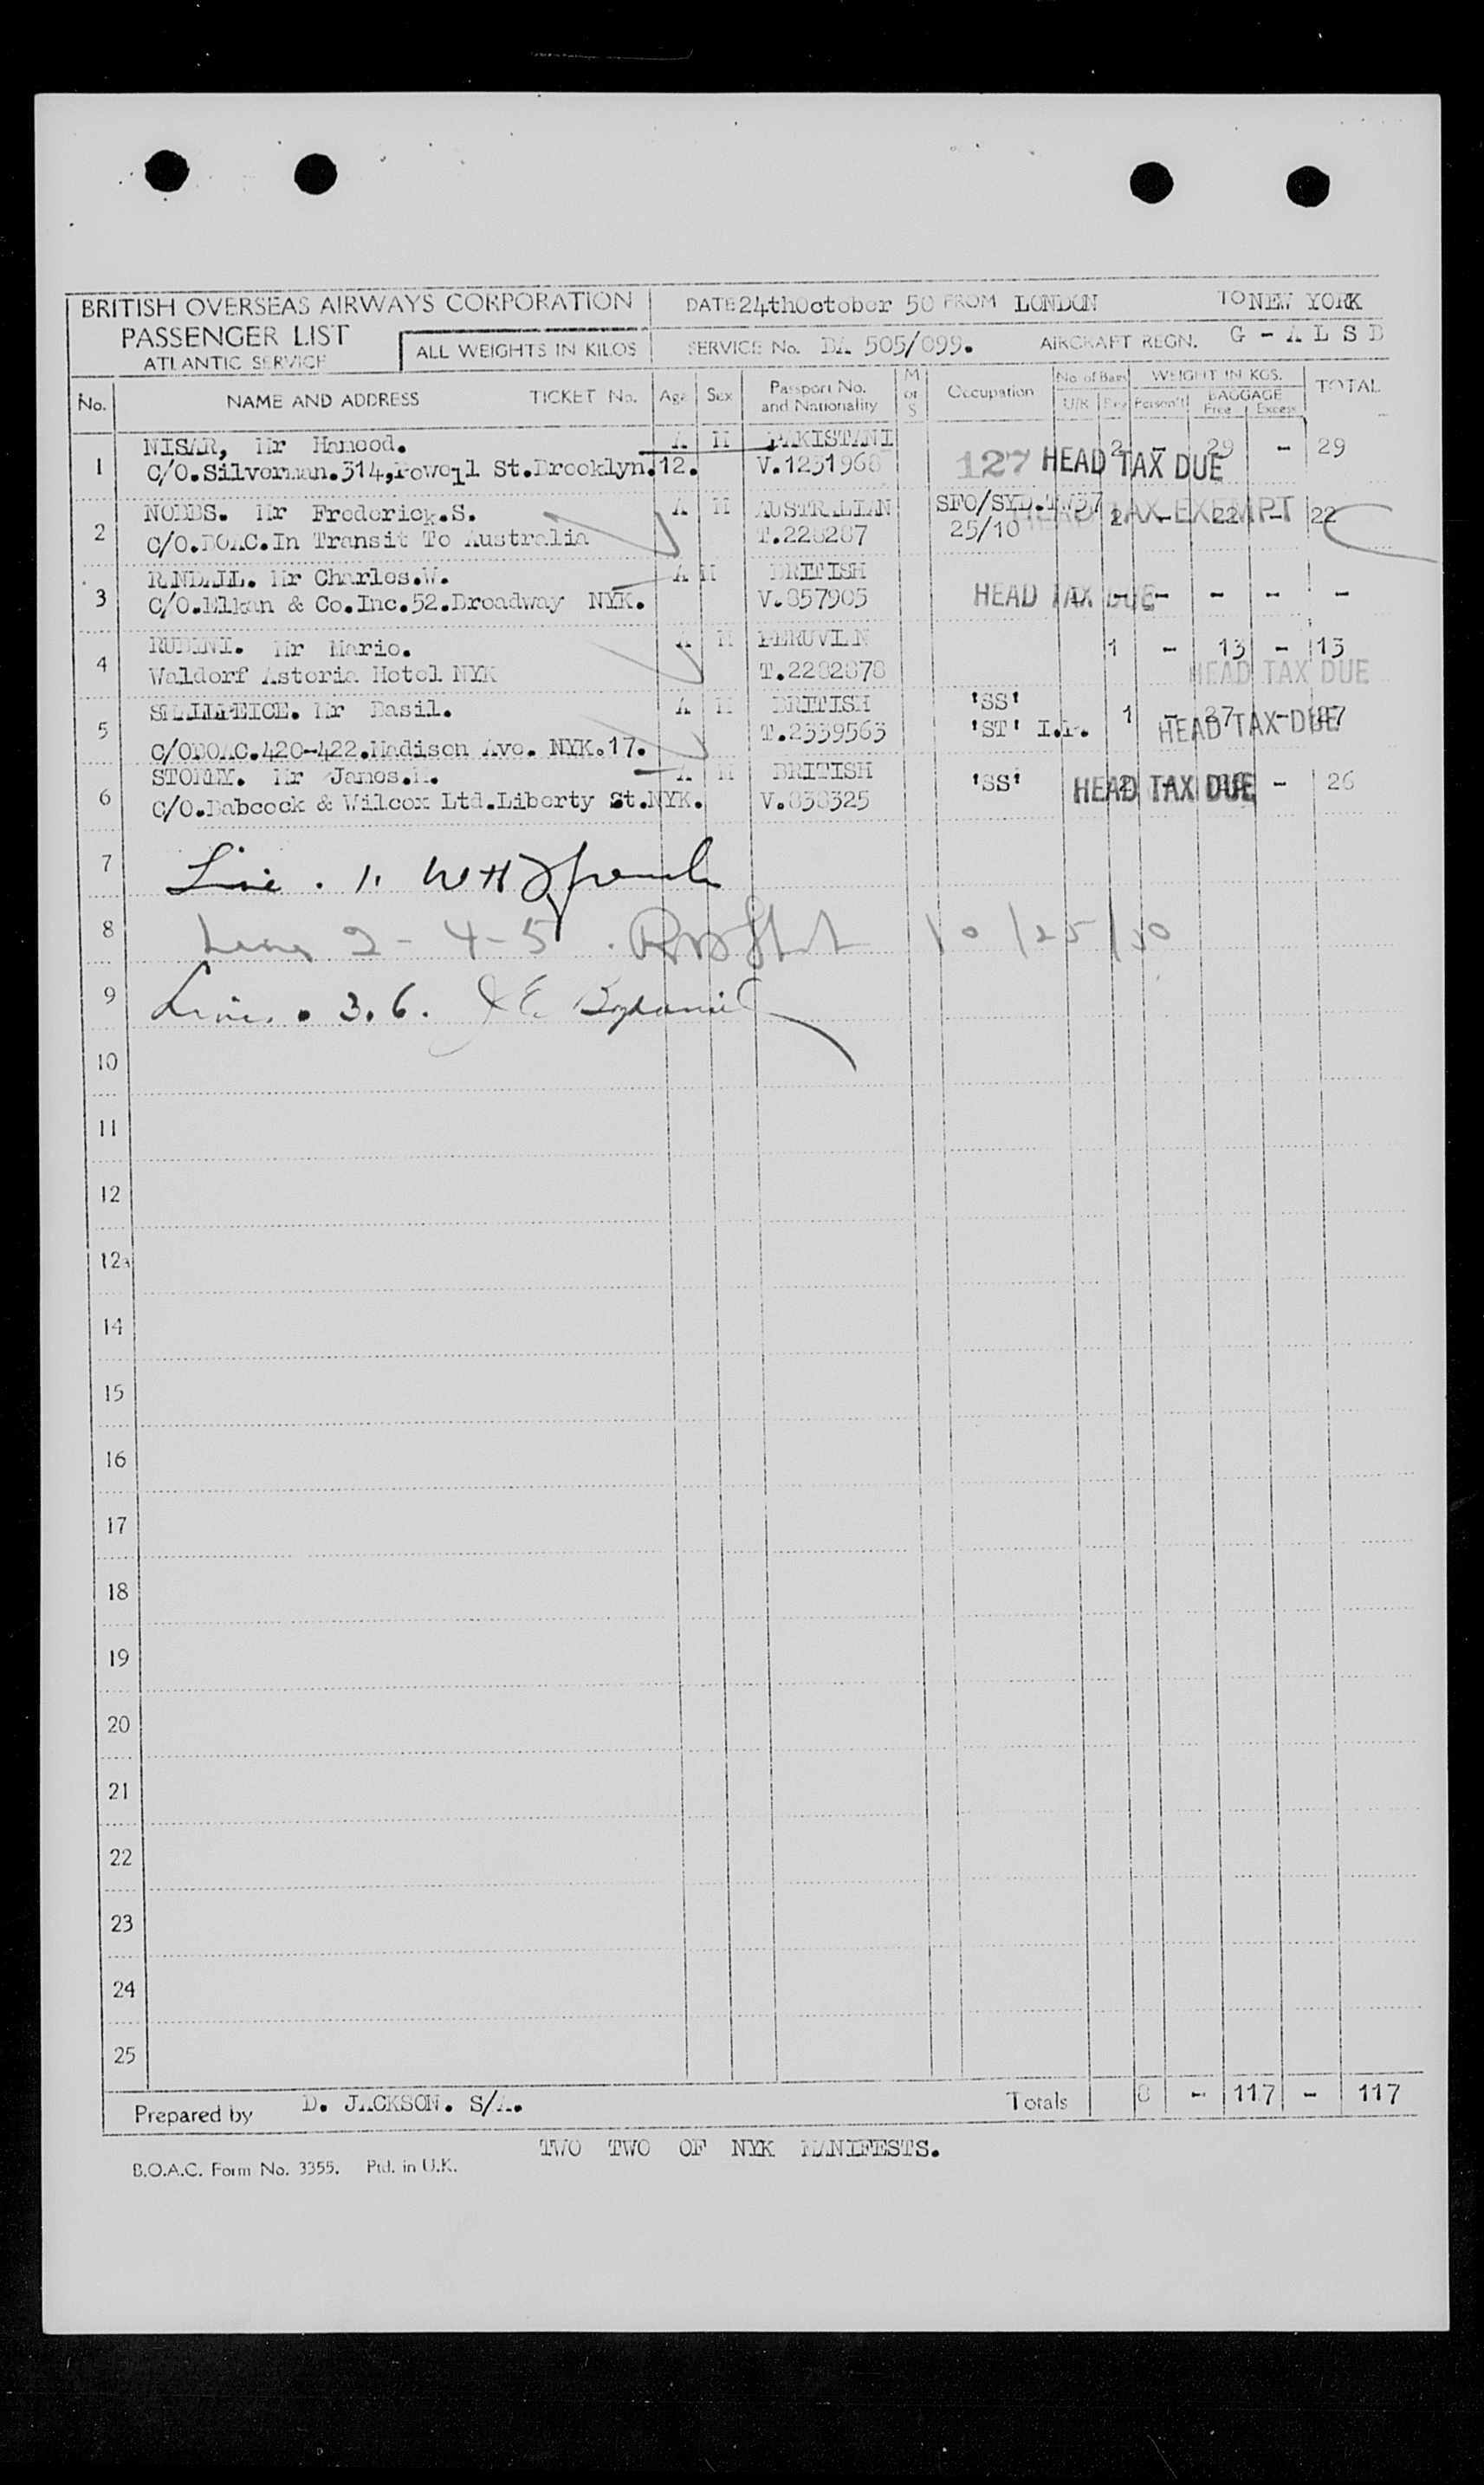 BRITISH OVERSEAS AIRWAYS CORPORATION DATE 24thOctober 50 FROM LONDON TO NEW YORK
PASSENGER LIST
ATLANTIC SERVICE ALL WEIGHTS IN KILOS SERVICE No. BA 505/099. AIRCRAFT REGN. G - A L S D
No. NAME AND ADDRESS TICKET No. Age Sex Passport No. and Nationality M or S Occupation No. of Bags U/K WEIGHT IN KGS. Person'l BAGGAGE Free Excess TOTAL
1 NISAR, Mr Hamood. A M PAKISTANI 2 - 29 - 29
C/O.Silverman.314,Powell St.Brooklyn.12. V.1231968 127 HEAD TAX DUE
2 NOBBS. Mr Frederick.S. A M AUSTRALIAN SFO/SYD. 2 - 22 - 22
C/O.BOAC.In Transit To Australia T.228287 25/10 HEAD TAX EXEMPT
3 RANDALL. Mr Charles.W. A M BRITISH
C/O.Elkan & Co.Inc.52.Broadway NYK. V.857905 HEAD TAX DUE - - - - -
4 RUBINI. Mr Mario. A M PERUVIAN 1 - 13 - 13
Waldorf Astoria Hotel NYK T.2282878 HEAD TAX DUE
5 SMALLPEICE. Mr Basil. A M BRITISH 'SS' 1 - 27 - 27
C/OBOAC.420-422.Madison Ave. NYK.17. T.2339563 'ST' HEAD TAX DUE
6 STOREY. Mr James. A M BRITISH 'SS' HEAD TAX DUE - 26
C/O.Babcock & Wilcox Ltd.Liberty St.NYK. V.838325
7 Line . 1.
8 Lines 2 - 4 - 5 . 10/25/50
9 Lines . 3.6.
10
11
12
12a
14
15
16
17
18
19
20
21
22
23
24
25
Prepared by D. JACKSON. S/A. Totals 8 - 117 - 117
TWO TWO OF NYK MANIFESTS.
B.O.A.C. Form No. 3355. Ptd. in U.K.